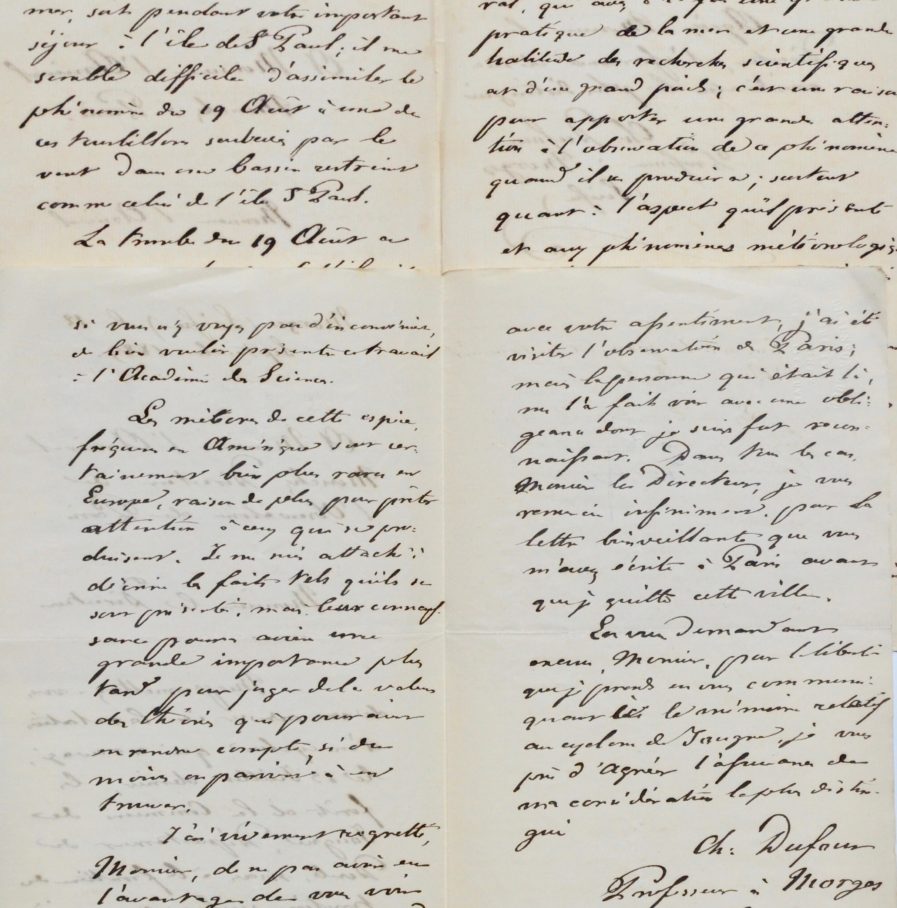 mer, soit pendant votre important
séjour à l'île de St Paul; il me
semble difficile d'assimiler le
phénomène du 19 Août à un de
ces tourbillons soulevés par le
vent dans un bassin restreint
comme celui de l'île St Paul.
La trombe du 19 Août a
pratique de la mer et une grande
habitude des recherches scientifiques
est d'un grand poids; c'est une raison
pour apporter une grande atten-
tion à l'observation de ce phénomène
quand il se produira; surtout
quant à l'aspect qu'il présente
et aux phénomènes météorologi
si vous n'y voyez pas d'inconvénient,
de bien vouloir présenter ce travail
à l'Académie des Sciences.
Les météores de cette espèce,
fréquents en Amérique sont cer-
tainement bien plus rares en
Europe, raison de plus pour prêter
attention à ceux qui se pro-
duisent. Je me suis attaché à
décrire les faits tels qu'ils se
sont présentés, mais leur connais-
sance pourra avoir une
grande importance plus
tard pour juger de la valeur
des théories qui pourraient
en rendre compte, si du
moins on parvient à en
trouver.
J'ai vivement regretté,
Monsieur, de ne pas avoir eu
l'avantage de vous voir
avec votre assentiment, j'ai été
visiter l'observatoire de Paris;
mais la personne qui était là,
me l'a fait voir avec une obli-
geance dont je suis fort recon-
naissant. Dans tous les cas,
Monsieur le Directeur, je vous
remercie infiniment, pour la
lettre bienveillante que vous
m'avez écrite à Paris avant
que je quitte cette ville.
En vous demandant
encore Monsieur, pour la liberté
que je prends en vous communi-
quant le mémoire relatif
au cyclone de Jougne, je vous
prie d'agréer l'assurance de
ma considération la plus distin-
guée
Ch: Dufour
Professeur à Morges